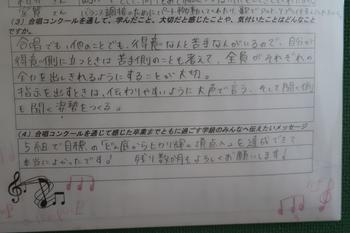 (3) 合唱コンクールを通して、学んだこと、大切だと感じたことや、気付いたことはどんなこと
ですか。
合唱でも、他のことでも、得意な人と苦手な人がいるので、自分が
得意側に立つときは苦手側のことも考えて、全員がそれぞれの
全力を出しきれるようにすることが大切。
指示を出すときは、伝わりやすいように大声で言う、そして聞く側
も聞く姿勢をつくる。
(4) 合唱コンクールを通じて感じた卒業までともに過ごす学級のみんなへ伝えたいメッセージ
5組で目標の「どん底から上り輝く頂点へ」を達成できて
本当によかったです! 残り数か月もよろしくお願いします!